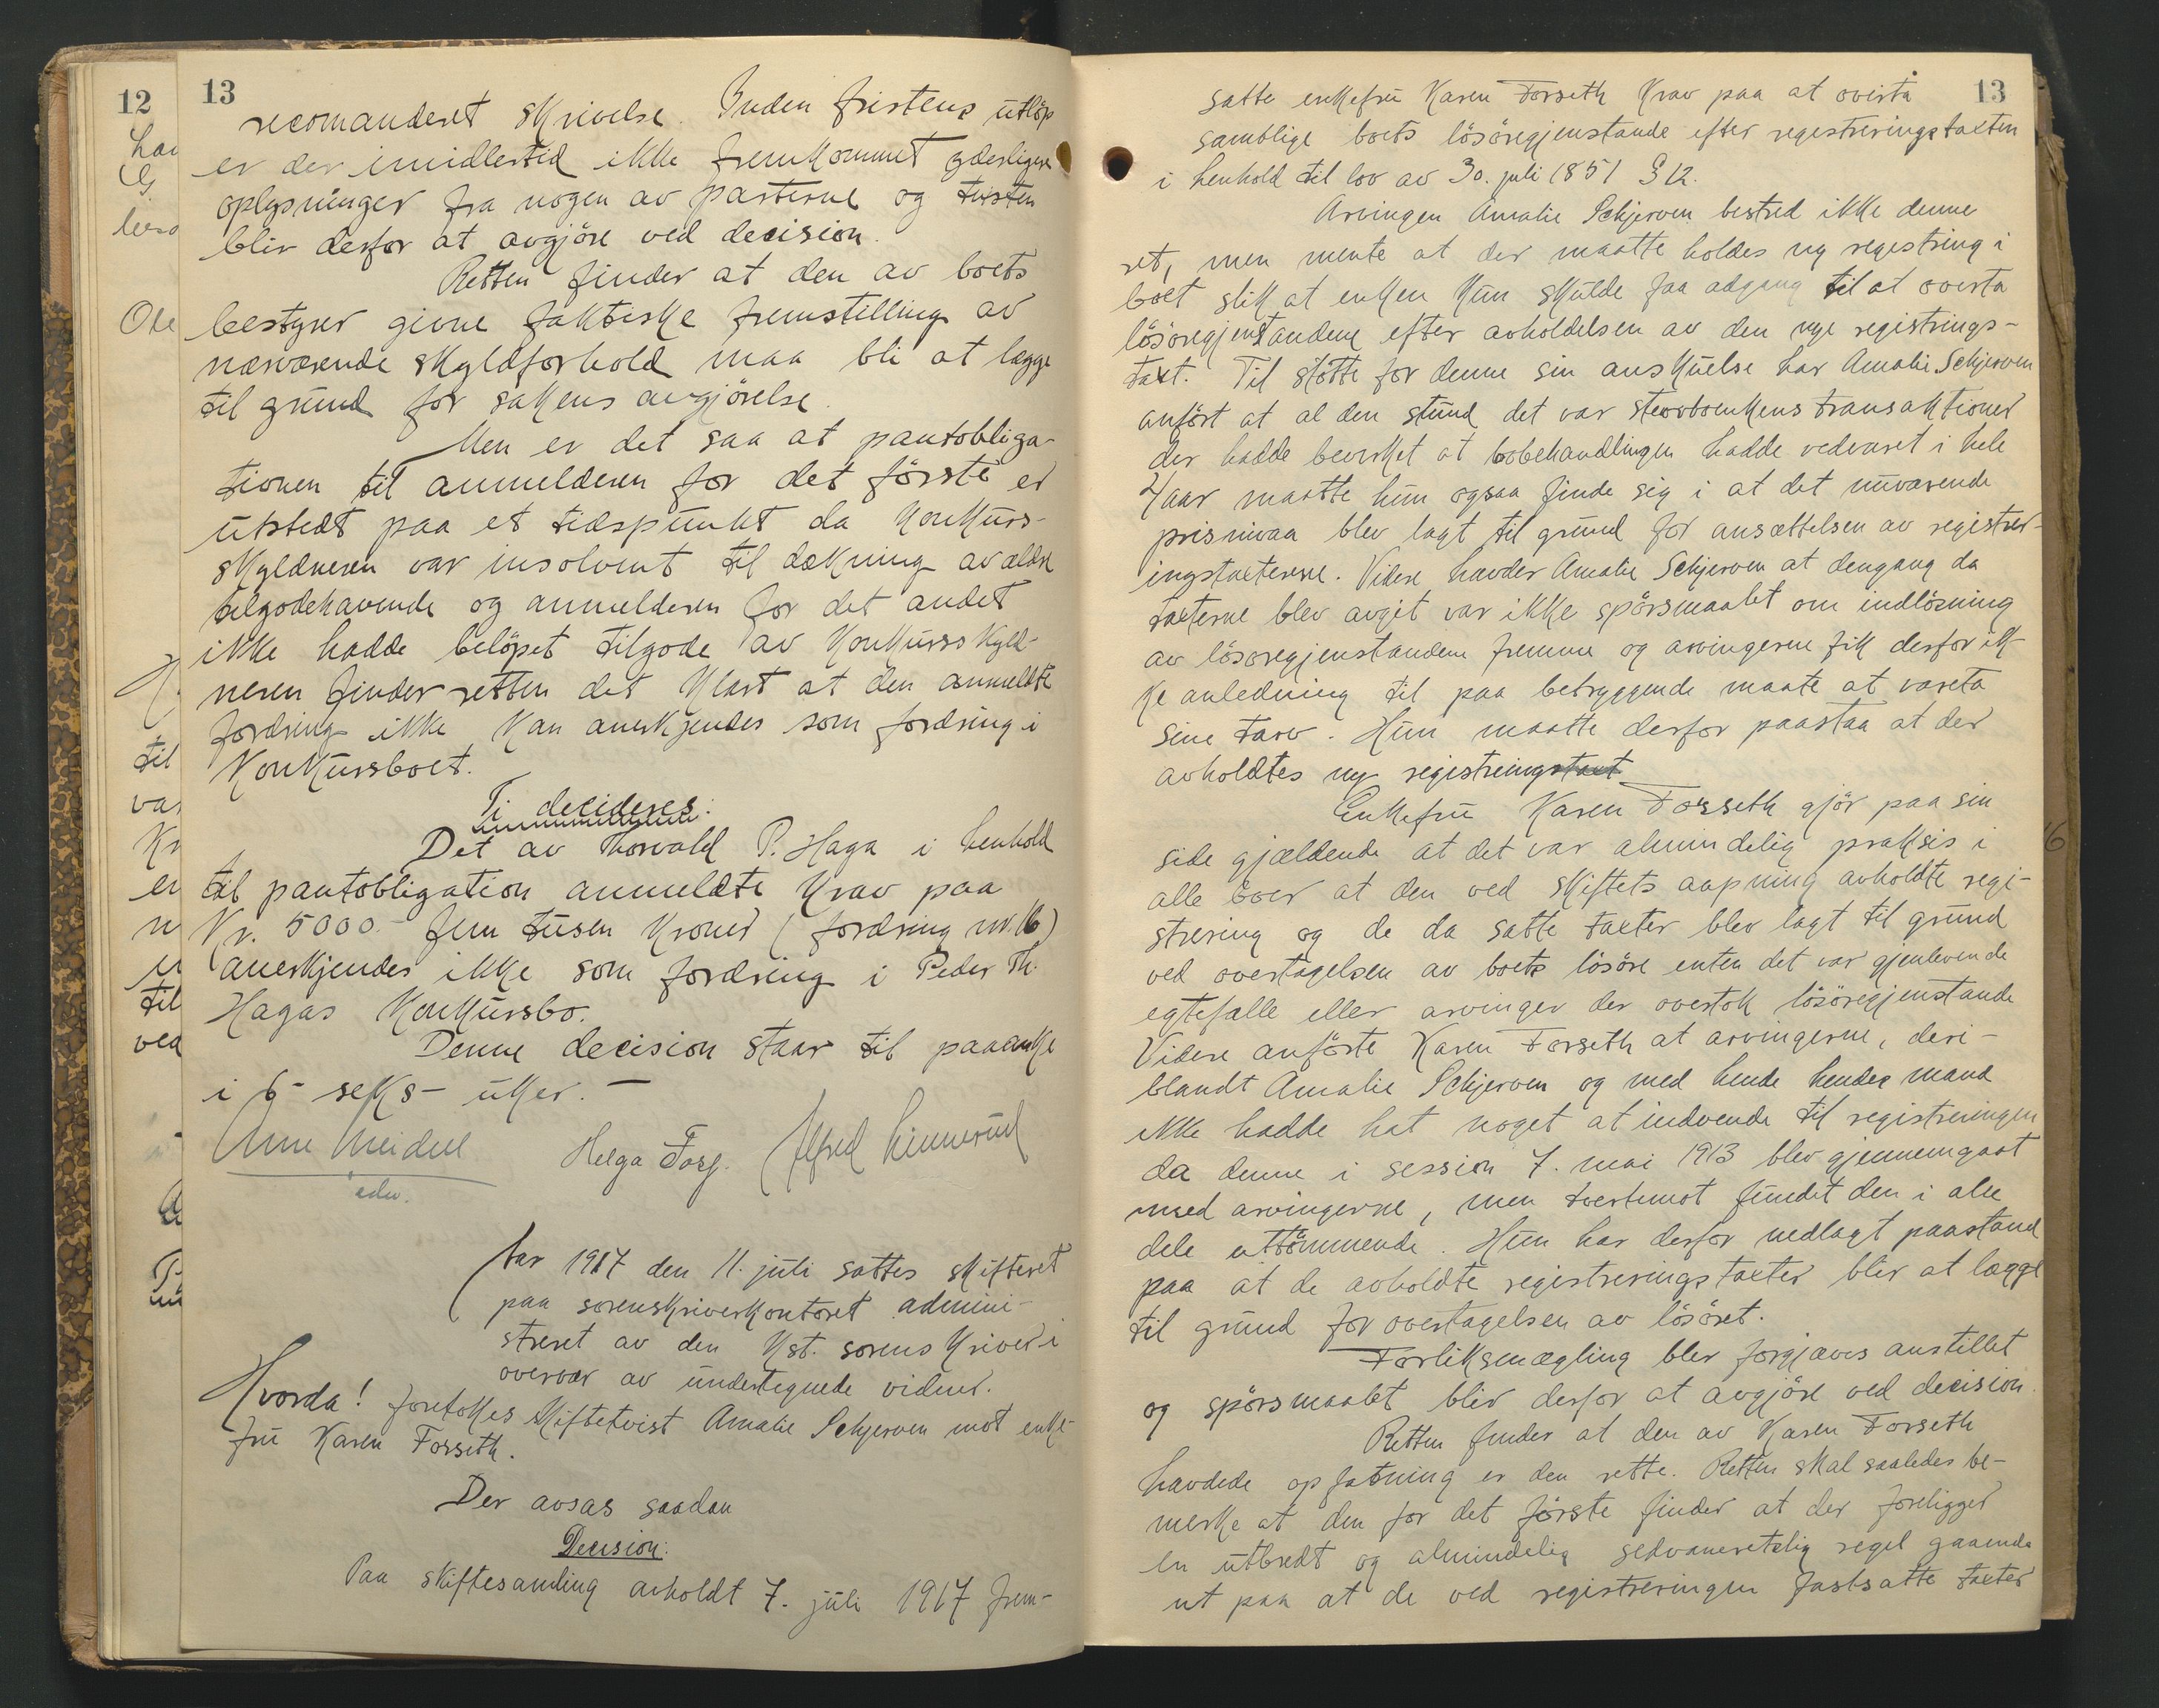 12
Ole
til
Kr
er
til
ved
13
recomanderet skrivelse. Inden fristens utløp
er der imidlertid ikke fremkommet yderligere
oplysninger fra nogen av parterne og tvisten
blir derfor at avgjöre ved decision.
Retten finder at den av boets
bestyrer givne faktiske fremstilling av
nærværende skyldforhold maa bli at lægge
til grund for sakens avgjörelse.
Men er det saa at pantobliga-
tionen til anmelderen for det förste er
utstedt paa et tidspunkt da konkurs-
skyldneren var insolvent til dækning av ældre
tilgodehavende og anmelderen for det andet
ikke hadde belöpet tilgode av konkursskyld-
neren finder retten det klart at den anmeldte
fordring ikke kan anerkjendes som fordring i
konkursboet.
Ti decideres:
Det av Thorvald P. Haga i henhold
til pantobligation anmeldte krav paa
Kr. 5000.- fem tusen kroner (fordring nr. 16)
anerkjendes ikke som fordring i Peder Th.
Hagas konkursbo.
Denne decision staar til paaanke
i 6 - seks - uker. -
Helga Forg. Alfred Linnerud
Aar 1917 den 11. juli sattes skifteret
paa sorenskriverkontoret admini-
streret av den kst. sorenskriver i
overvær av undertegnede vidner.
Hvorda! foretokes skiftetvist Amalie Schjerven mot enke-
fru Karen Forseth.
Der avsas saadan
Decision:
Paa skiftesamling avholdt 7. juli 1917 frem-
13
satte enkefru Karen Forseth krav paa at overta
samtlige boets lösöregjenstande efter registreringstaxten
i henhold til lov av 30. juli 1851 § 12.
Arvingen Amalie Schjerven bestred ikke denne
ret, men mente at der maatte holdes ny regestring i
boet slik at enken kun skulde faa adgang til at overta
lösöregjenstandene efter avholdelsen av den nye registrings-
taxt. Til stötte for denne sin anskuelse har Amalie Schjerven
anfört at al den stund det var stervboenkens transaktioner
der hadde bevirket at bobehandlingen hadde vedvaret i hele
4 aar maatte hun ogsaa finde sig i at det nuværende
prisnivaa blev lagt til grund for ansættelsen av registrer-
ingstaxterne. Videre hævder Amalie Schjerven at dengang da
taxterne blev avgit var ikke spörsmaalet om indlösning
av lösöregjenstandene fremme og arvingerne fik derfor ik-
ke anledning til paa betryggende maate at vareta
sine tarv. Hun maatte derfor paastaa at der
avholdtes ny registreringstaxt
Enkefru Karen Forseth gjör paa sin
side gjældende at det var almindelig praksis i
alle boer at den ved skiftets aapning avholdte regi-
strering og de da satte taxter blev lagt til grund
ved overtagelsen av boets lösöre enten det var gjenlevende
egtefælle eller arvinger der overtok lösöregjenstande
Videre anförte Karen Forseth at arvingerne, deri-
blandt Amalie Schjerven og med hende hendes mand
ikke hadde hat noget at indvende til registreringen
da denne i session 7. mai 1913 blev gjennemgaat
med arvingerne, men tvertimot fundet den i alle
dele uttömmende. Hun har derfor nedlagt paastand
paa at de avholdte registreringstaxter blir at lægge
til grund for overtagelsen av lösöret.
Forliksmægling blev forgjæves anstillet
og spörsmaalet blir derfor at avgjöre ved decision.
Retten finder at den av Karen Forseth
hævdede opfatning er den rette. Retten skal saaledes be-
merke at den for det förste finder at der foreligger
en utbredt og almindelig sedvaneretslig regel gaaende
ut paa at de ved registreringen fastsatte taxter